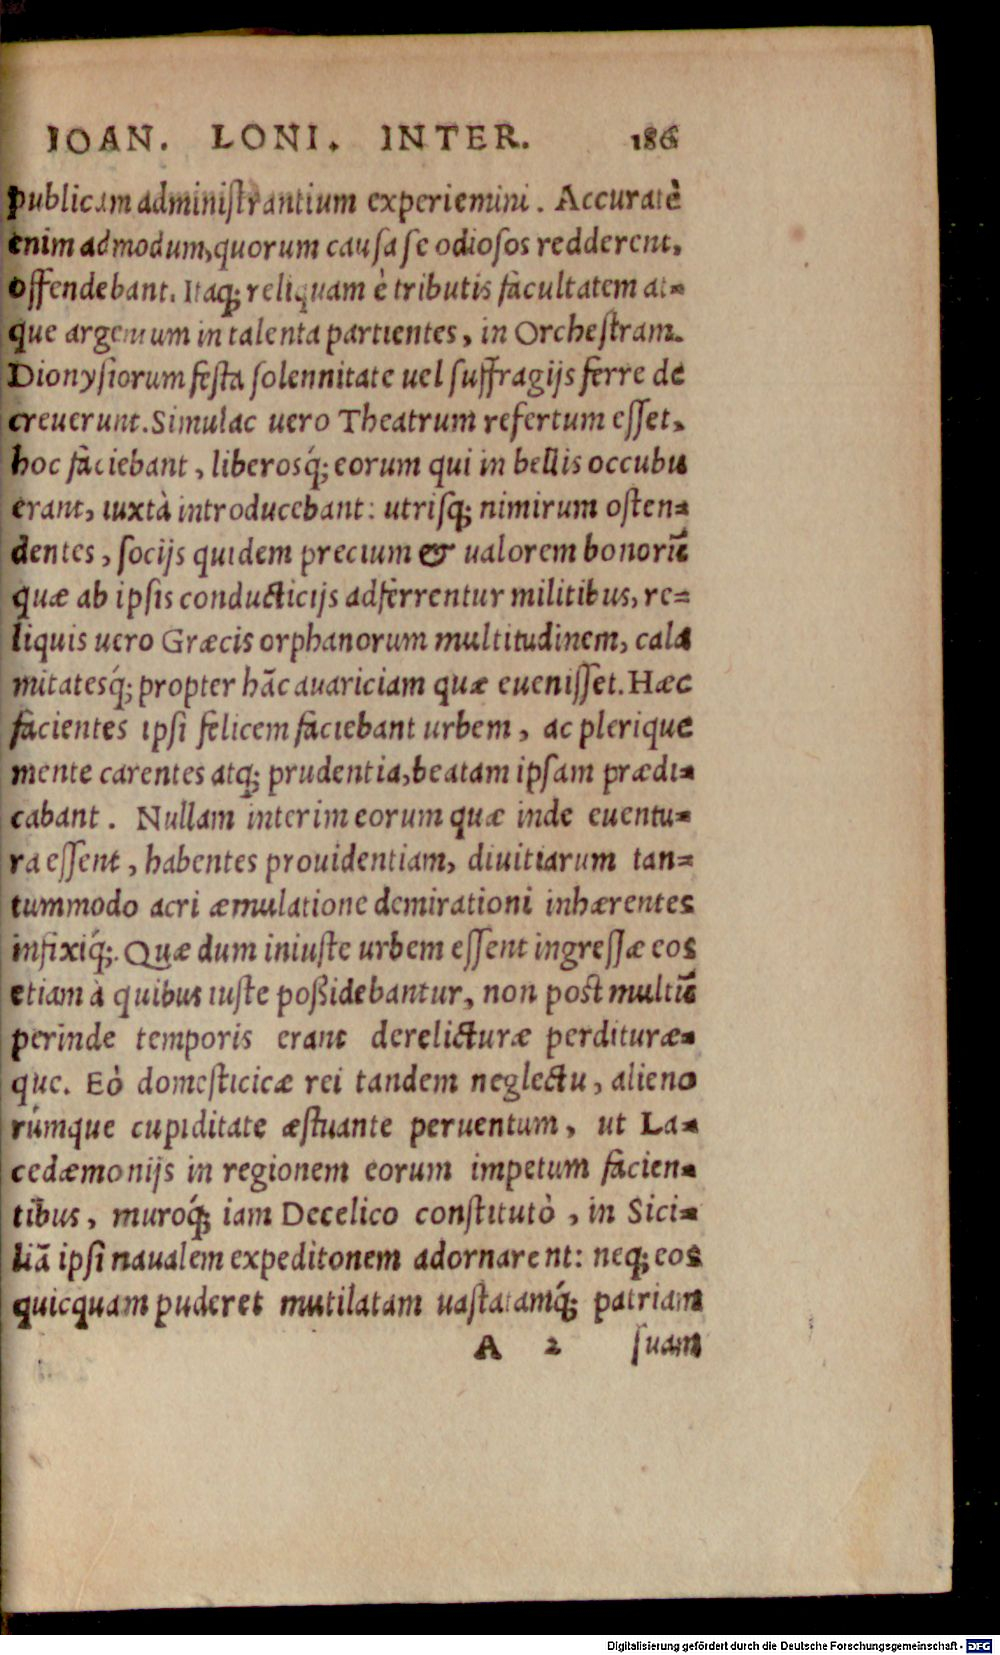 IOAN. LONI. INTER. 186
publicam administrantium experiemini. Accuratè
enim admodum, quorum causa se odiosos redderent,
offendebant. Itaq; reliquam è tributis facultatem at-
que argentum in talenta partientes, in Orchestram.
Dionysiorum festa solennitate uel suffragijs ferre de
creuerunt. Simulac uero Theatrum refertum esset,
hoc faciebant, liberosq́; eorum qui in bellis occubu
erant, iuxtà introducebant: utrisq; nimirum osten-
dentes, socijs quidem precium & ualorem bonorũ
quæ ab ipsis conducticijs adferrentur militibus, re-
liquis uero Græcis orphanorum multitudinem, cala
mitatesq́; propter hãc auariciam quæ euenisset. Hæc
facientes ipsi felicem faciebant urbem, ac plerique
mente carentes atq; prudentia, beatam ipsam prædi-
cabant. Nullam interim eorum quæ inde euentu-
ra essent, habentes prouidentiam, diuitiarum tan-
tummodo acri æmulatione demirationi inhærentes
infixiq́;. Quæ dum iniuste urbem essent ingressæ eos
etiam à quibus iuste poßidebantur, non post multũ
perinde temporis erant derelicturæ perdituræ-
que. Eò domesticicæ rei tandem neglectu, alieno
rúmque cupiditate æstuante peruentum, ut La-
cedæmonijs in regionem eorum impetum facien-
tibus, muroq́; iam Decelico constitutò, in Sici-
liã ipsi naualem expeditonem adornarent: neq; eos
quicquam puderet mutilatam uastatamq́; patriam
A 2 suam
Digitalisierung gefördert durch die Deutsche Forschungsgemeinschaft - DFG